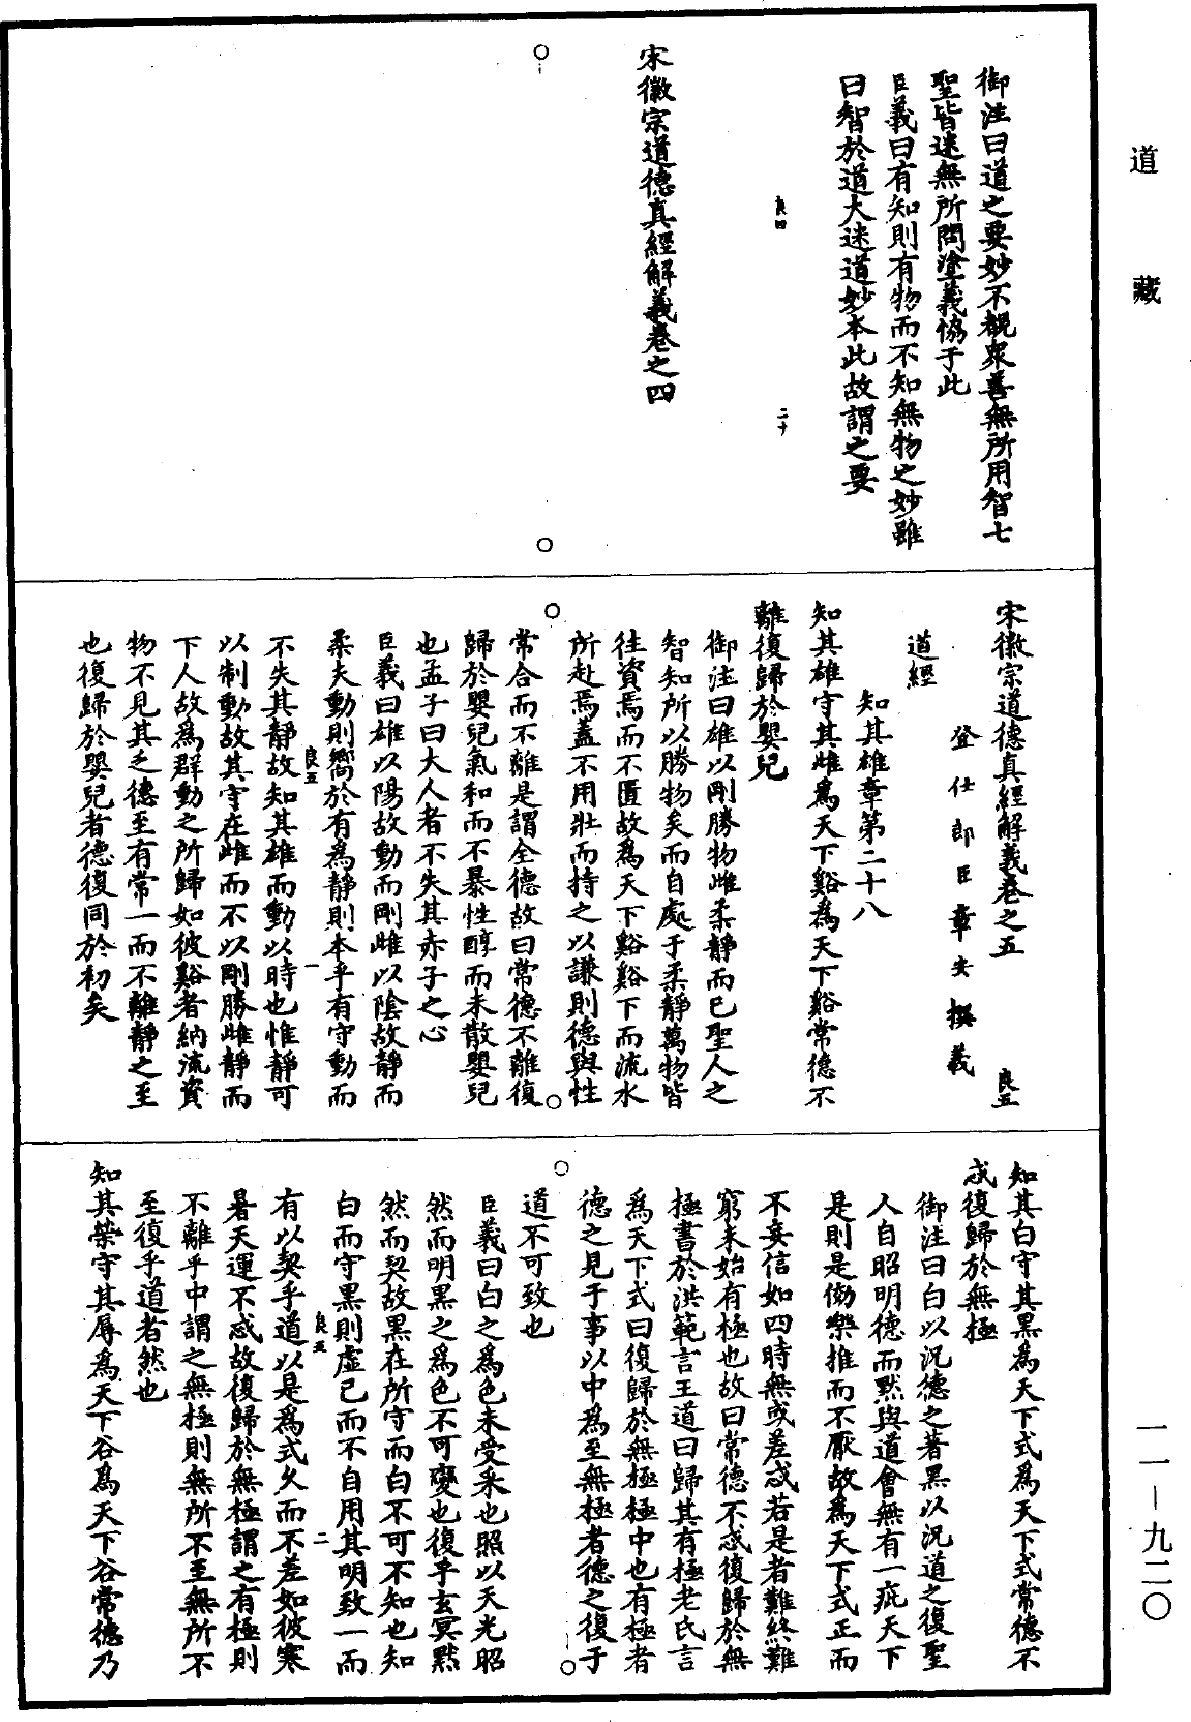 道藏
御注曰道之要妙不覩衆善無所用智七
聖皆迷無所問塗義協于此
臣義曰有知則有物而不知無物之妙雖
曰智於道大迷道妙本此故謂之要
良四
二十
宋徽宗道德真經解義卷之四
宋徽宗道德真經解義卷之五
良五
登仕郎臣章安撰義
道經
知其雄章第二十八
知其雄守其雌爲天下谿爲天下谿常德不
離復歸於嬰兒
御注曰雄以剛勝物雌柔靜而已聖人之
智知所以勝物矣而自處于柔靜萬物皆
往資焉而不匱故爲天下谿谿下而流水
所赴焉蓋不用壯而持之以謙則德與性
常合而不離是謂全德故曰常德不離復
歸於嬰兒氣和而不暴性醇而未散嬰兒
也孟子曰大人者不失其赤子之心
臣義曰雄以陽故動而剛雌以陰故靜而
柔夫動則嚮於有爲靜則本乎有守動而
良五
一
不失其靜故知其雄而動以時也惟靜可
以制動故其守在雌而不以剛勝雌靜而
下人故爲群動之所歸如彼谿者納流資
物不見其乏德至有常一而不離靜之至
也復歸於嬰兒者德復同於初矣
知其白守其黑爲天下式爲天下式常德不
忒復歸於無極
御注曰白以況德之著黑以況道之復聖
人自昭明德而默與道會無有一疵天下
是則是傚樂推而不厭故爲天下式正而
不妄信如四時無或差忒若是者難終難
窮未始有極也故曰常德不忒復歸於無
極書於洪範言王道曰歸其有極老氏言
爲天下式曰復歸於無極極中也有極者
德之見于事以中爲至無極者德之復于
道不可致也
臣義曰白之爲色未受采也照以天光昭
然而明黑之爲色不可變也復乎玄冥黙
然而契故黑在所守而白不可不知也知
白而守黑則虛己而不自用其明致一而
良五
二
有以契乎道以是爲式久而不差如彼寒
暑天運不忒故復歸於無極謂之有極則
不離乎中謂之無極則無所不至無所不
至復乎道者然也
知其榮守其辱爲天下谷爲天下谷常德乃
一一—九二〇